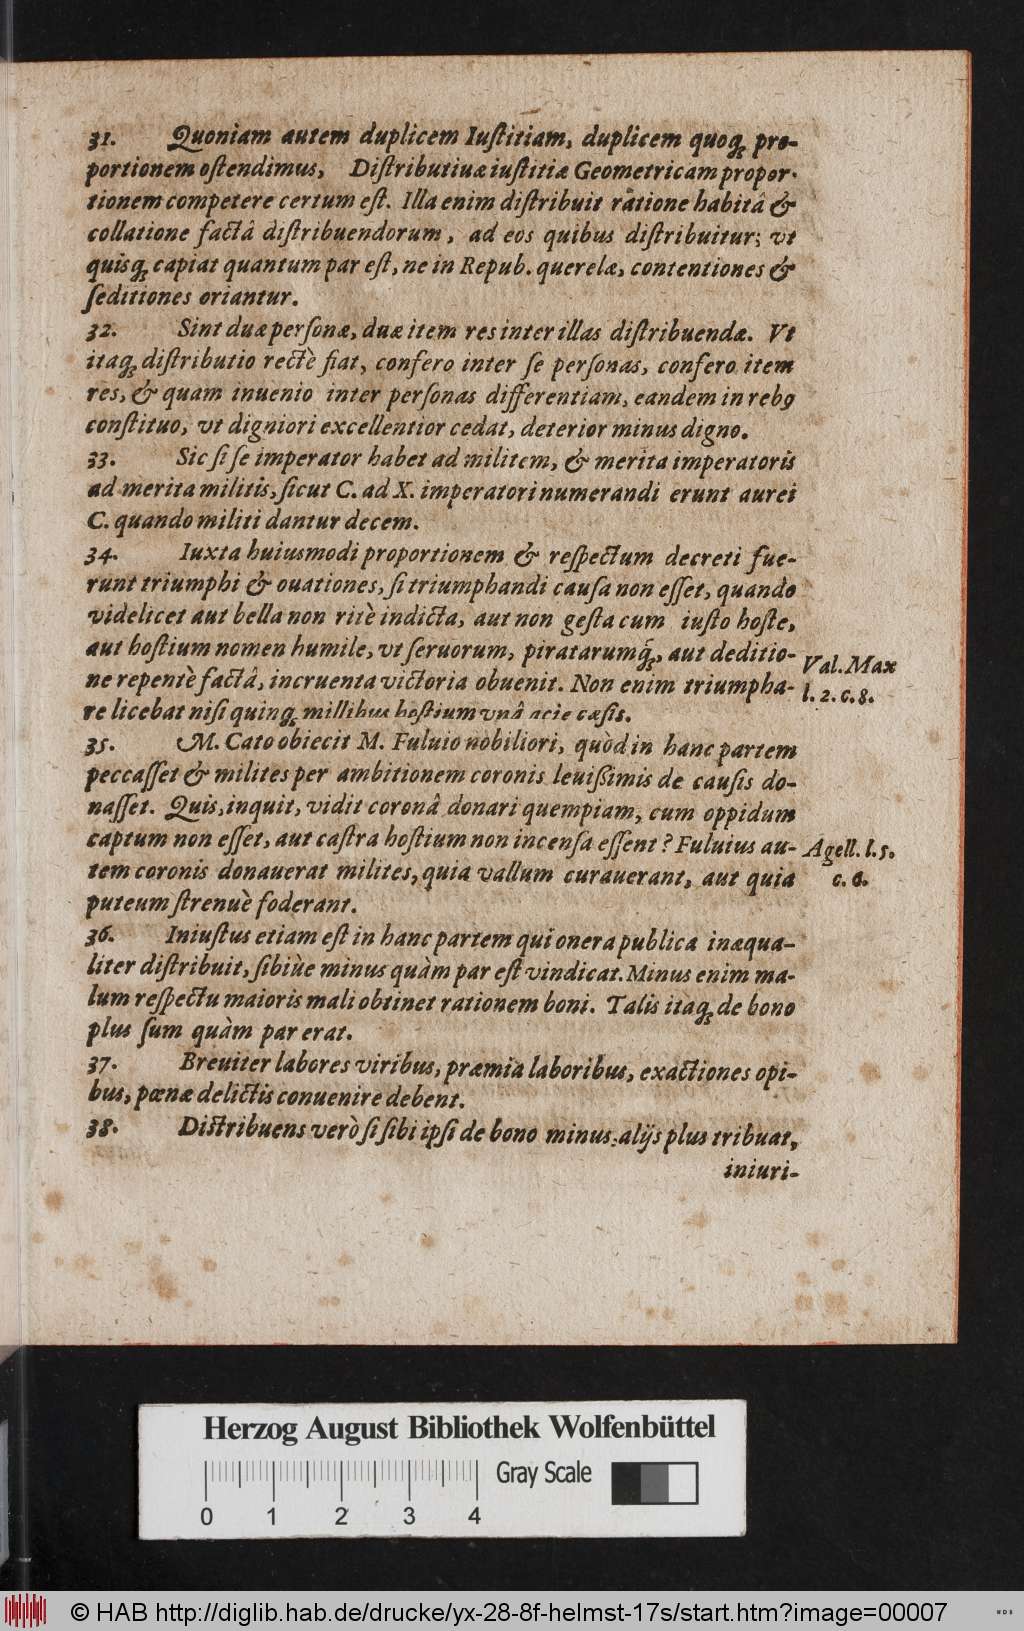 31. Quoniam autem duplicem Iuſtitiam, duplicem quoq́; pro-
portionem oſtendimus, Diſtributiuæ iuſtitiæ Geometricam propor-
tionem competere certum eſt. Illa enim diſtribuit ratione habitâ &
collatione factâ diſtribuendorum, ad eos quibus diſtribuitur; vt
quisq́; capiat quantum par eſt, ne in Repub. querelæ, contentiones &
ſeditiones oriantur.
32. Sint duæ perſonæ, duæ item res inter illas diſtribuendæ. Vt
itaq́; diſtributio rectè fiat, confero inter ſe perſonas, confero item
res, & quam inuenio inter perſonas differentiam, eandem in rebꝰ
conſtituo, vt digniori excellentior cedat, deterior minus digno.
33. Sic ſi ſe imperator habet ad militem, & merita imperatoris
ad merita militis, ſicut C. ad X. imperatori numerandi erunt aurei
C. quando militi dantur decem.
34. Iuxta huiusmodi proportionem & reſpectum decreti fue-
runt triumphi & ouationes, ſi triumphandi cauſa non eſſet, quando
videlicet aut bella non ritè indicta, aut non geſta cum iuſto hoſte,
aut hoſtium nomen humile, vt ſeruorum, piratarumq́;, aut deditio-
ne repentè factâ, incruenta victoria obuenit. Non enim triumpha-
re licebat niſi quinq́; millibus hoſtium vnâ acie cæſis.
Val. Max
l. 2. c. 8.
35. M. Cato obiecit M. Fuluio nobiliori, quòd in hanc partem
peccaſſet & milites per ambitionem coronis leuißimis de cauſis do-
naſſet. Quis, inquit, vidit coronâ donari quempiam, cum oppidum
captum non eſſet, aut caſtra hoſtium non incenſa eſſent? Fuluius au-
tem coronis donauerat milites, quia vallum curauerant, aut quia
puteum ſtrenuè foderant.
Agell. l. 5.
c. 6.
36. Iniuſtus etiam eſt in hanc partem qui onera publica inæqua-
liter diſtribuit, ſibiùe minus quàm par eſt vindicat. Minus enim ma-
lum reſpectu maioris mali obtinet rationem boni. Talis itaq́; de bono
plus ſum quàm par erat.
37. Breuiter labores viribus, præmia laboribus, exactiones opi-
bus, pœnæ delictis conuenire debent.
38. Diſtribuens verò ſi ſibi ipſi de bono minus, alijs plus tribuat,
iniuri-
Herzog August Bibliothek Wolfenbüttel
Gray Scale
0 1 2 3 4
© HAB http://diglib.hab.de/drucke/yx-28-8f-helmst-17s/start.htm?image=00007